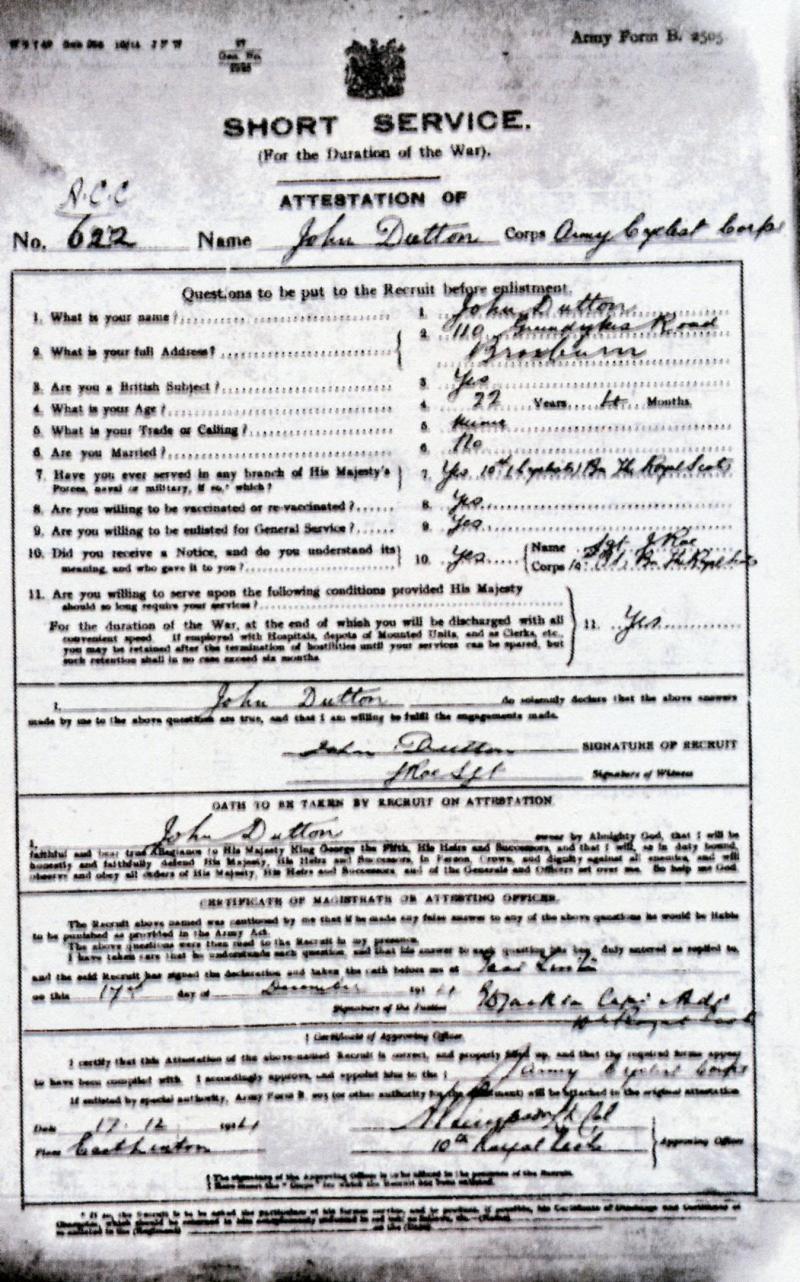 Army Form B. 2505
SHORT SERVICE.
(For the Duration of the War).
ATTESTATION OF
A.C.C
No. 622 Name John Dutton Corps Army Cyclist Corps
Questions to be put to the Recruit before enlistment.
1. What is your name? 1. John Dutton
2. What is your full Address? 2. 110 Road
Broxburn
3. Are you a British Subject? 3 Yes
4. What is your Age? 4. 22 Years Months
5. What is your Trade or Calling? 5. Miner
6. Are you Married? 6. No
7. Have you ever served in any branch of His Majesty's
Forces, naval or military, if so,* which? 7. Yes 10th (Cyclist) Bn The Royal Scots
8. Are you willing to be vaccinated or re-vaccinated? 8. Yes
9. Are you willing to be enlisted for General Service? 9. Yes
10. Did you receive a Notice, and do you understand its
meaning, and who gave it to you? 10. Yes Name Sgt J Roe
Corps 10 Bn The Royal Scots
11. Are you willing to serve upon the following conditions provided His Majesty
should so long require your services?
For the duration of the War, at the end of which you will be discharged with all
convenient speed. If employed with Hospitals, depots of Mounted Units, and as Clerks, etc.,
you may be retained after the termination of hostilities until your services can be spared, but
such retention shall in no case exceed six months. 11. Yes
I, John Dutton do solemnly declare that the above answers
made by me to the above questions are true, and that I am willing to fulfil the engagements made.
John Dutton SIGNATURE OF RECRUIT
J Roe Sgt Signature of Witness
OATH TO BE TAKEN BY RECRUIT ON ATTESTATION
I, John Dutton swear by Almighty God, that I will be
faithful and bear true Allegiance to His Majesty King George the Fifth, His Heirs and Successors, and that I will, as in duty bound,
honestly and faithfully defend His Majesty, His Heirs and Successors, in Person, Crown, and dignity against all enemies, and will
observe and obey all orders of His Majesty, His Heirs and Successors, and of the Generals and Officers set over me. So help me God
CERTIFICATE OF MAGISTRATE OR ATTESTING OFFICER.
The Recruit above named was cautioned by me that if he made any false answer to any of the above questions he would be liable
to be punished as provided in the Army Act.
The above questions were then read to the Recruit in my presence.
I have taken care that he understands each question, and that his answer to each question has been duly entered as replied to,
and the said Recruit has signed the declaration and taken the oath before me at East Linton
on this 17th day of December 1914
Signature of the Justice Capt Adjt
10th Royal Scots
† Certificate of Approving Officer.
I certify that this Attestation of the above-named Recruit is correct, and properly filled up, and that the required forms appear
to have been complied with. I accordingly approve, and appoint him to the ‡ Army Cyclist Corps
If enlisted by special authority, Army Form B. (or other authority for the enlistment) will be attached to the original attestation
Date 17.12 1914 Col
Place East Linton 10th Royal Scots Approving Officer
† The signature of the Approving Officer is to be affixed in the presence of the Recruit.
‡ Here insert the "Corps" for which the Recruit has been enlisted.